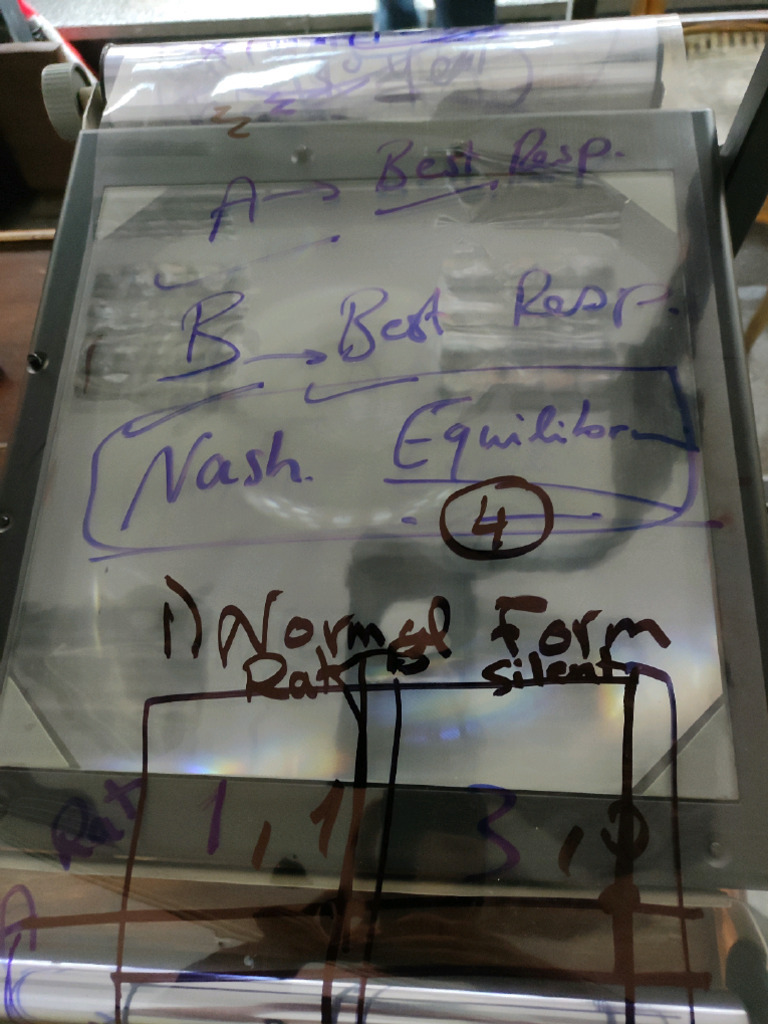 A → Best Resp.
B → Best Resp.
Nash. Equilibrm
4
1) Normal Form
B
Rat Silent
Rat 1, 1 3, 0
A